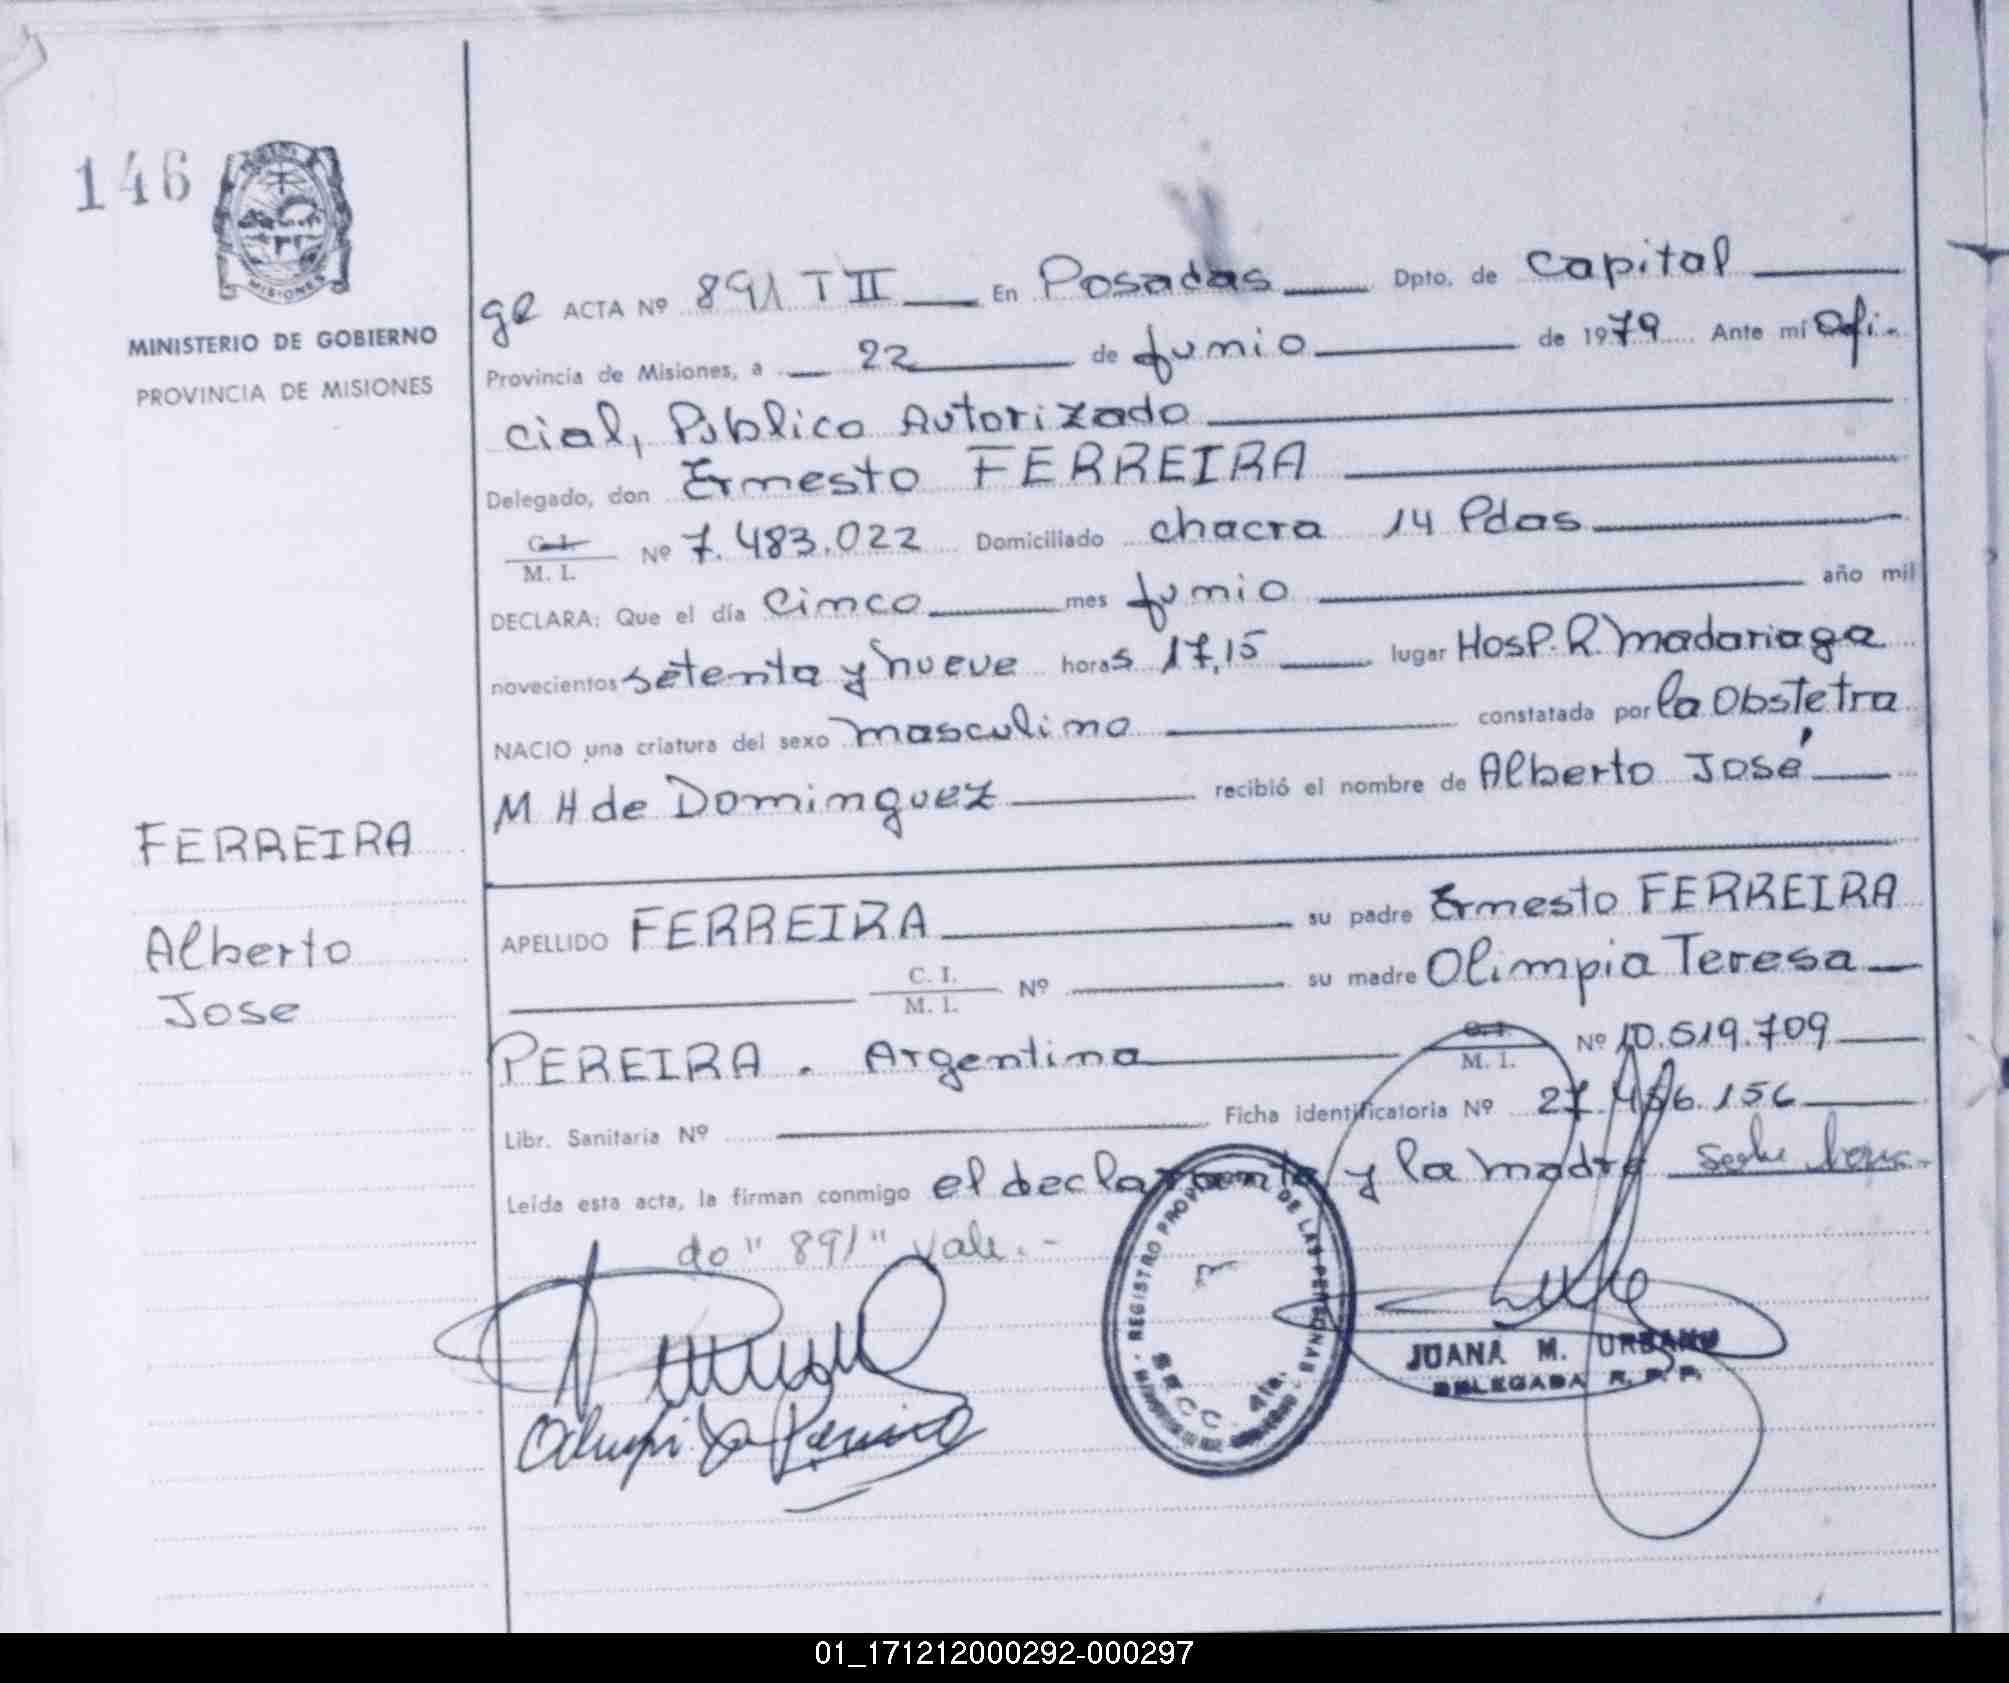 146
MISIONES
MINISTERIO DE GOBIERNO
PROVINCIA DE MISIONES
ge ACTA Nº 891 T II En Posadas Dpto. de Capital
Provincia de Misiones, a 22 de Junio de 1979 Ante mí Ofi-
cial, Público Autorizado
Delegado, don Ernesto FERREIRA
C. I.
M. I. Nº 7.483.022 Domiciliado chacra 14 Pdas
DECLARA: Que el día Cinco mes Junio año mil
novecientos setenta y nueve horas 17,15 lugar Hosp. R. Madariaga
NACIO una criatura del sexo masculino constatada por la Obstetra
M H de Dominguez recibió el nombre de Alberto José
FERREIRA
Alberto
Jose
APELLIDO FERREIRA su padre Ernesto FERREIRA
C. I.
M. I. Nº su madre Olimpia Teresa
PEREIRA. Argentina C. I.
M. I. Nº 10.519.709
Libr. Sanitaria Nº Ficha identificatoria Nº 27.456.156
Leída esta acta, la firman conmigo el declarante y la madre
do "891" vale.-
REGISTRO PROVINCIAL DE LAS PERSONAS
SECC. 4ta.
JUANA M. URBANO
DELEGADA R. P. P.
01_171212000292-000297